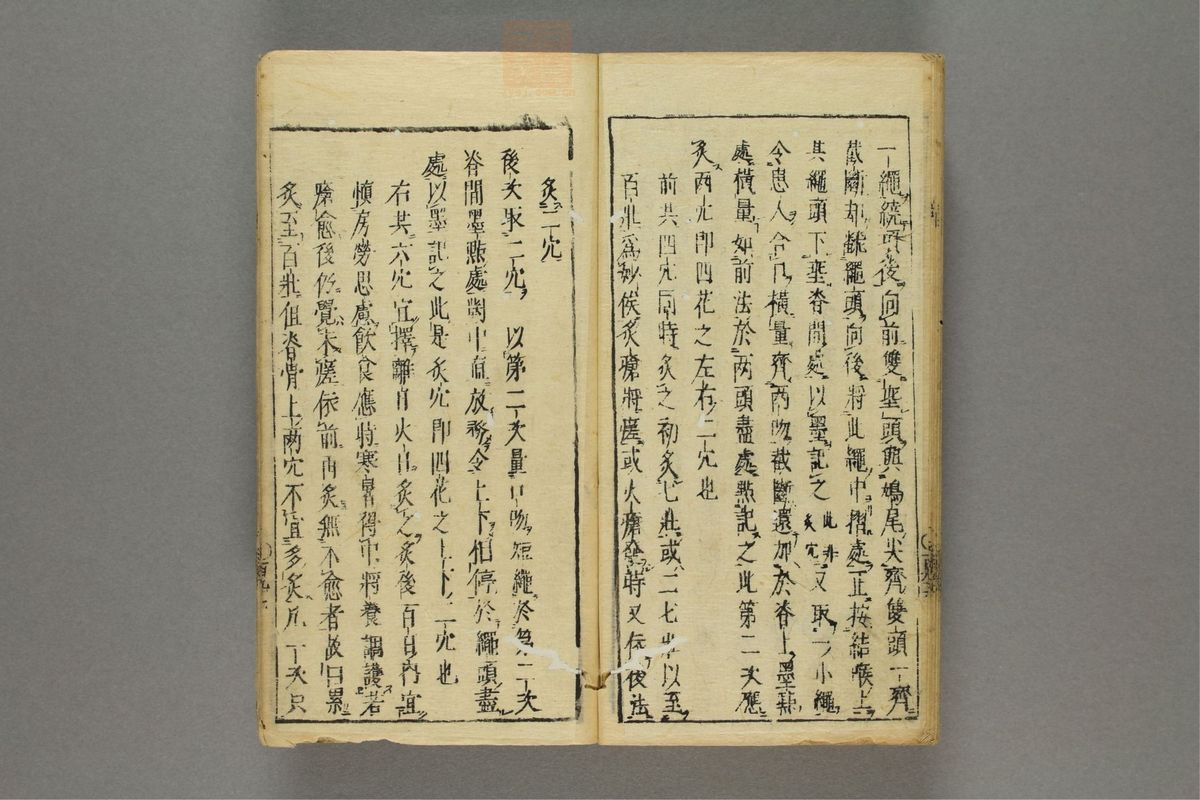 一繩繞項後向前雙垂頭與鳩尾尖齊雙頭一齊
截斷却翻繩頭向後將此繩中摺處正按結喉上
其繩頭下垂脊間處以墨記之此非灸穴又取一小繩
令患人合口橫量齊兩吻截斷還加於脊上墨點
處橫量如前法於兩頭盡處點記之此第二次應
灸兩穴即四花之左右二穴也
前共四穴同時灸之初灸七壯或二七壯以至
百壯為妙俟灸瘡將瘥或火瘡發時又依後法
灸二穴
後次取二穴以第二次量口吻短繩於第二次
脊間墨點處對中直放務令上下相停於繩頭盡
處以墨記之此是灸穴即四花之上下二穴也
右共六穴宜擇離日火日灸之灸後百日內宜
慎房勞思慮飲食應時寒暑得中將養調護若
瘡愈後仍覺未瘥依前再灸無不愈者故曰累
灸至百壯但脊骨上兩穴不宜多灸凡一次只